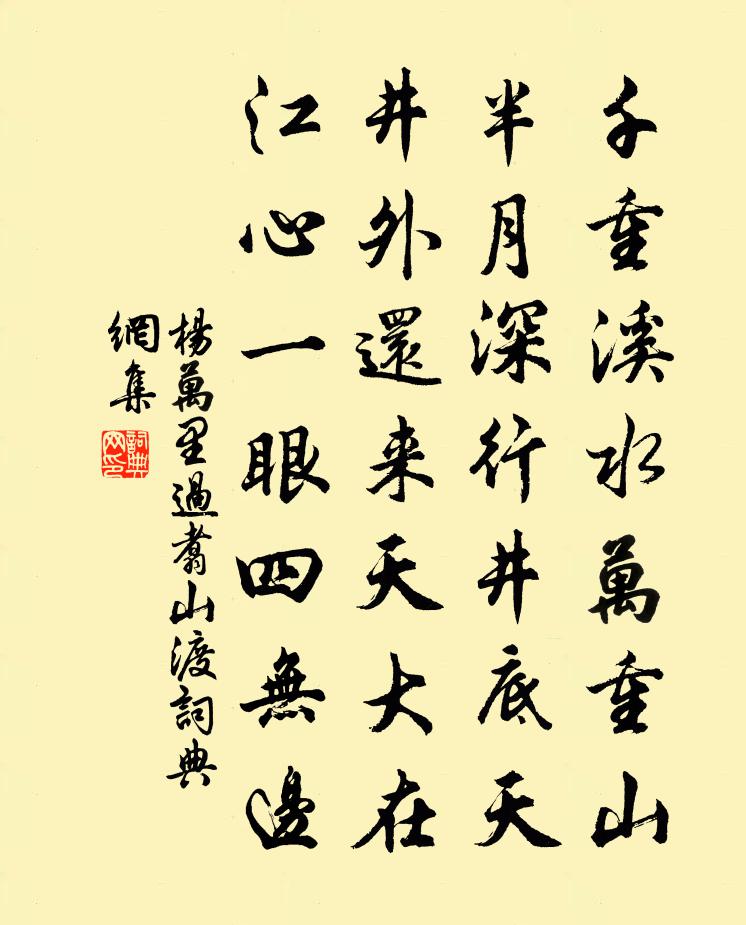 千重溪水萬重山
半月深行井底天
井外還来天大在
江心一眼四無邊
楊萬里過翥山渡詞典
網集
詞典
网印